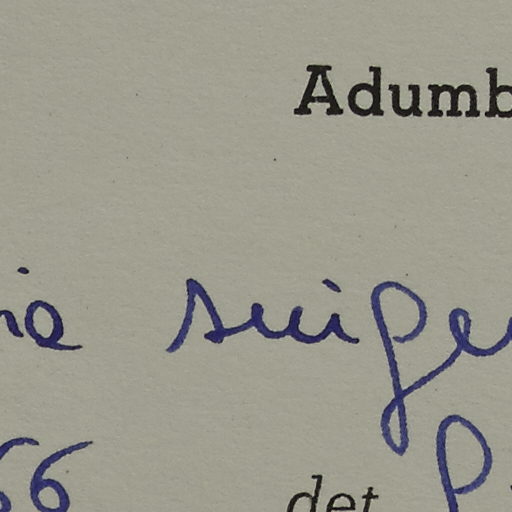 Adumb
ia suige
66 det